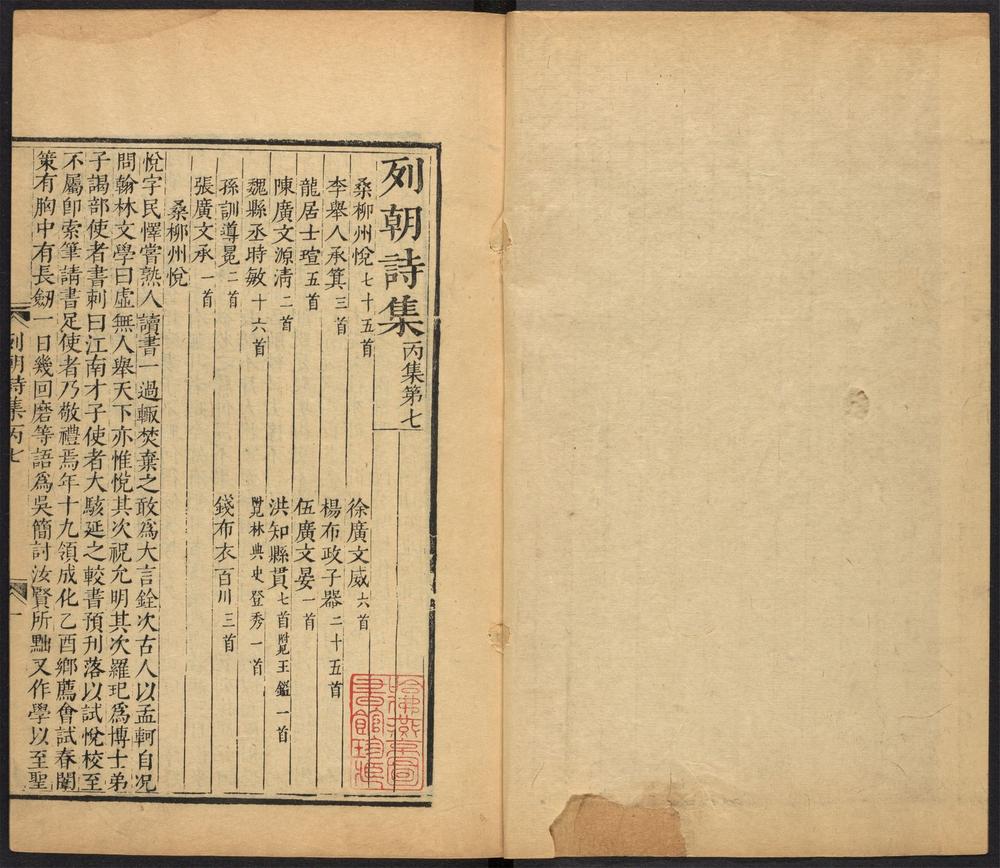 列朝詩集 丙集第七
桑柳州悅 七十五首 徐廣文威 六首
李舉人承箕 三首 楊布政子器 二十五首
龍居士瑄 五首 伍廣文晏 一首
陳廣文源清 二首 洪知縣貫 七首 附見王鑑一首
魏縣丞時敏 十六首 附見林典史登秀一首
孫訓導冕 二首 錢布衣百川 三首
張廣文承 一首
桑柳州悅
悅字民懌嘗熟人讀書一過輒焚棄之敢爲大言銓次古人以孟軻自况
問翰林文學曰虛無人舉天下亦惟悅其次祝允明其次羅玘爲博士弟
子謁部使者書刺曰江南才子使者大駭延之較書預刋落以試悅校至
不屬卽索筆請書足使者乃敬禮焉年十九領成化乙酉鄉薦會試春闈
策有胸中有長劒一日幾回磨等語爲吳簡討汝賢所黜又作學以至聖
列朝詩集丙七 一
哈佛燕京圖書館珍藏